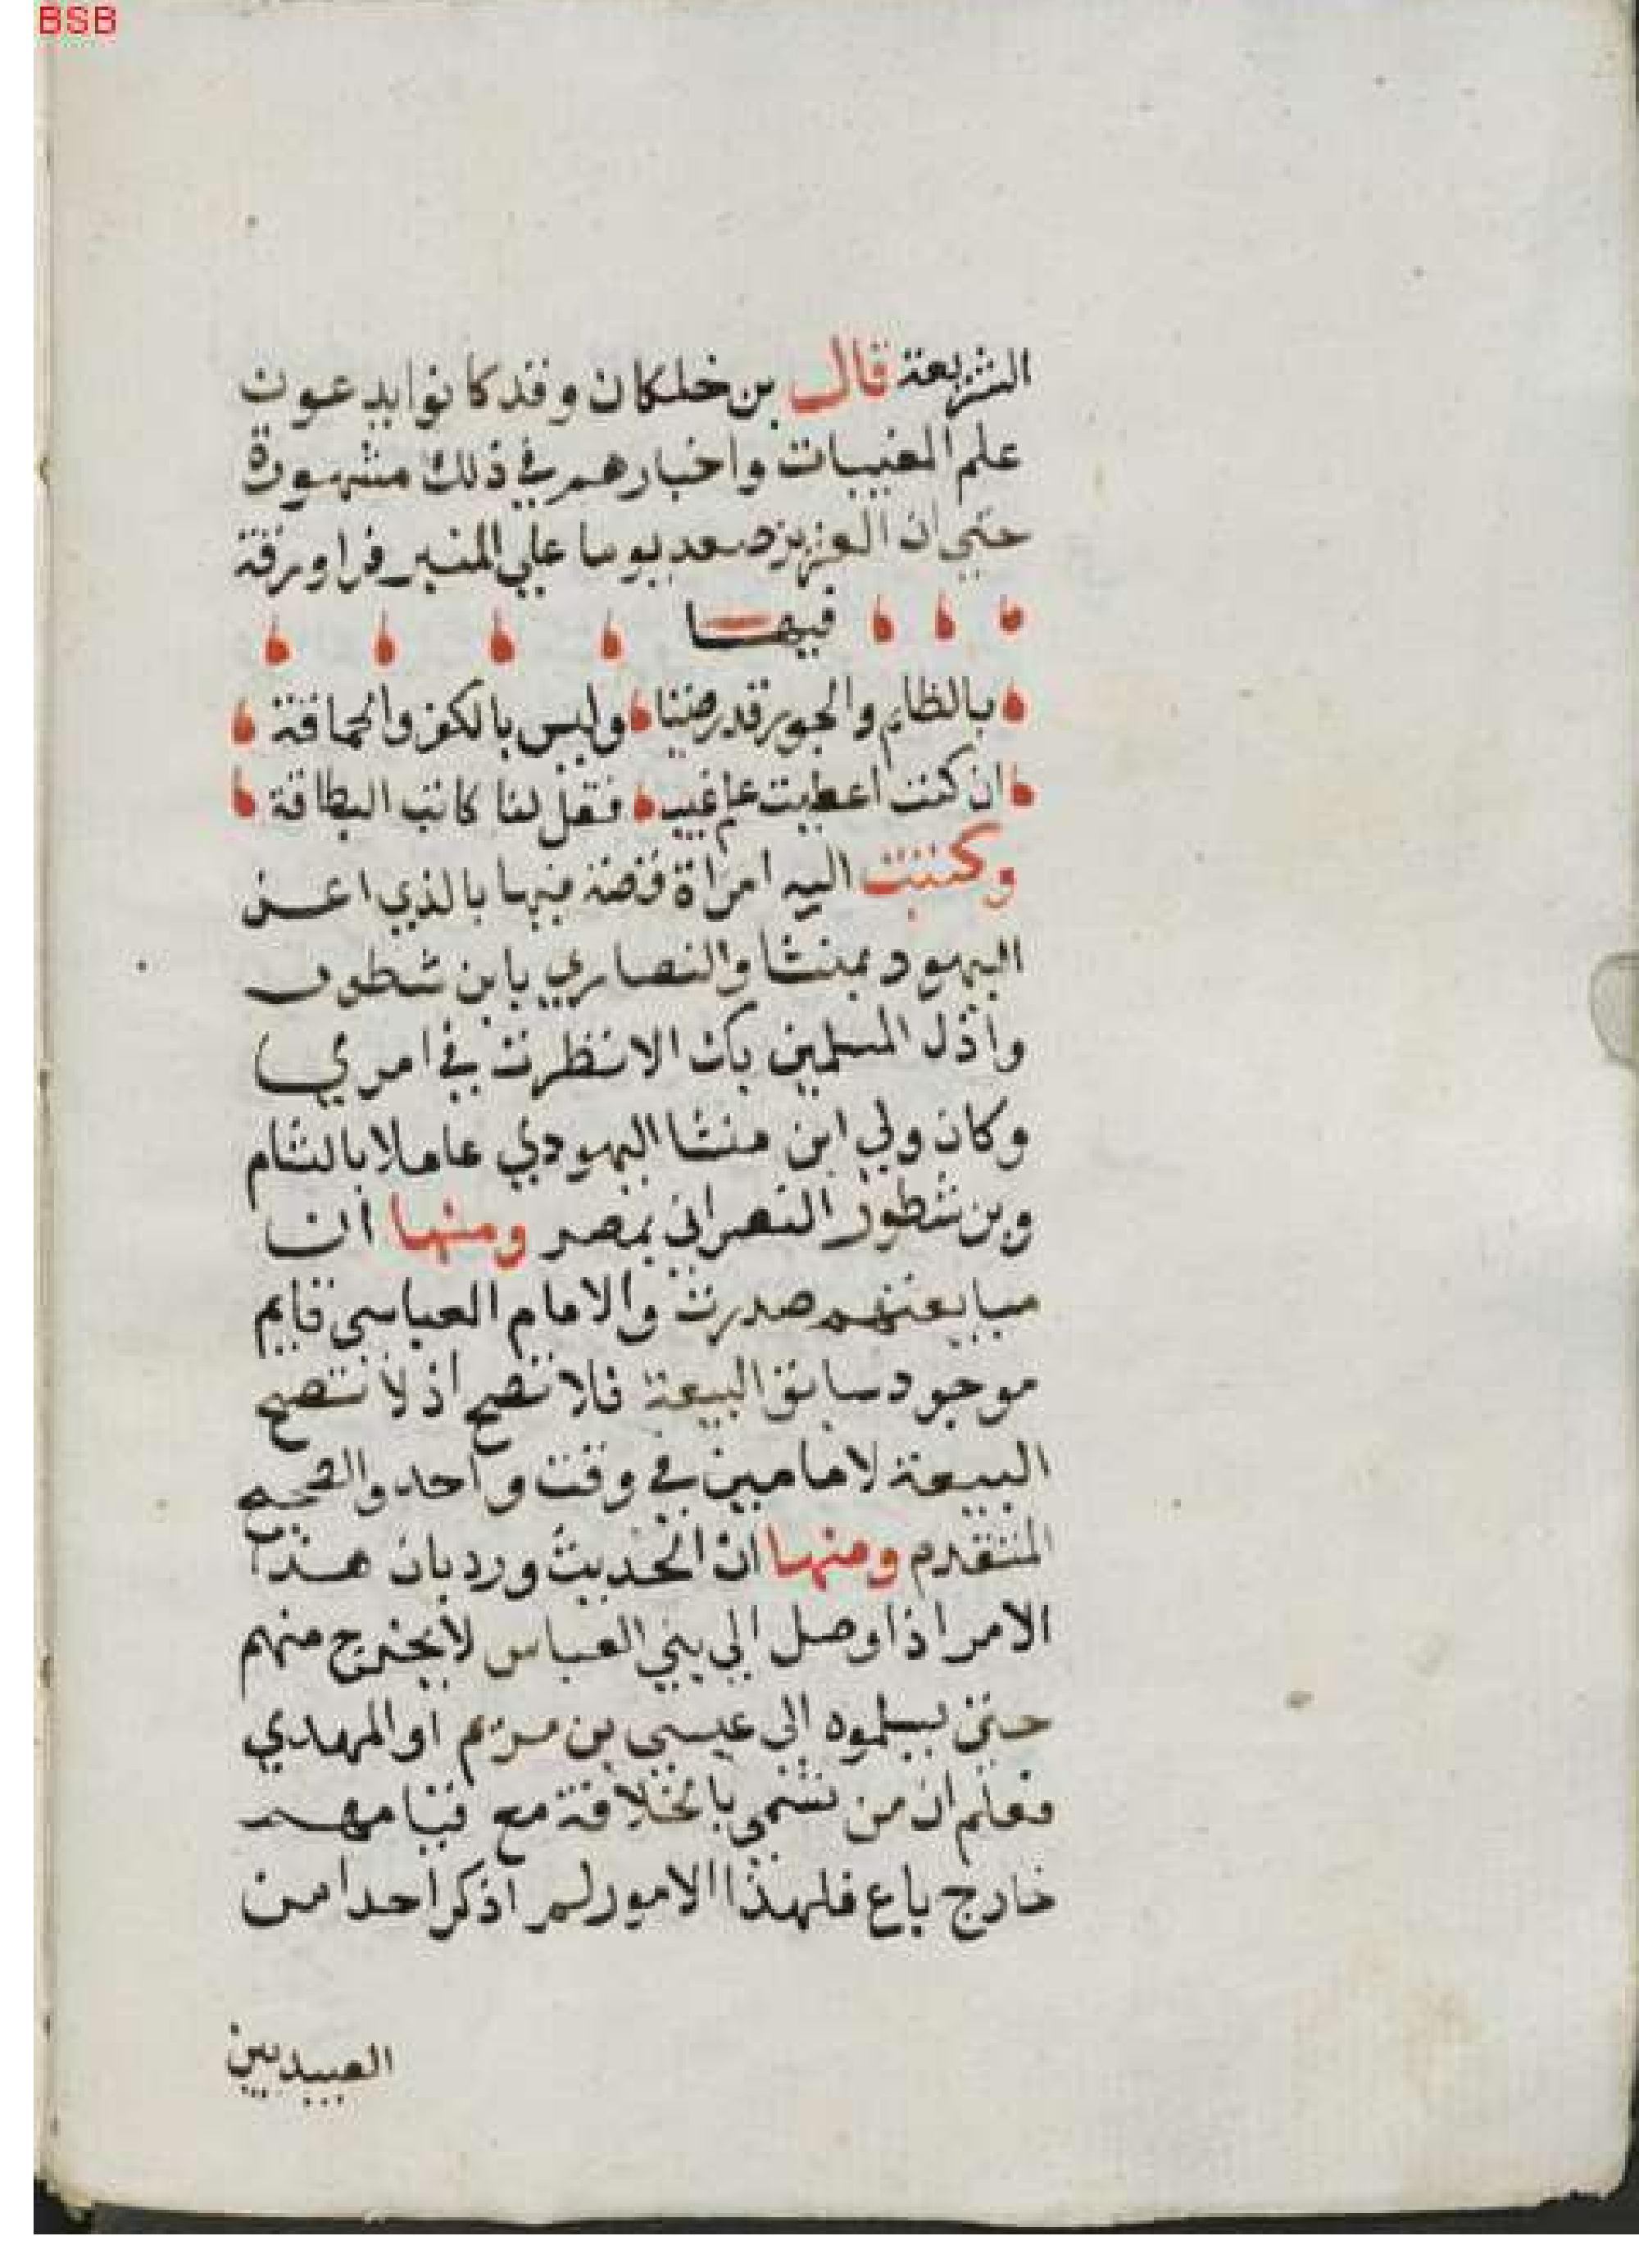 BSB
الشريعة قال بن خلكان وقد كانوا يدعون
علم المغيبات واخبارهم في ذلك مشهورة
حتي ان العزيز صعد يوما علي المنبر فرا ورقة
فيها
بالظلم والجور قد رضينا وليس بالكفر والحماقة
ان كنت اعطيت علم غيب فقل لنا كاتب البطاقة
وكتبت اليه امراة قصة فيها بالذي اعز
اليهود بمنشا والنصاري بابن نسطور
واذل المسلمين بك الا نظرت في امري
وكان ولي ابن منشا اليهودي عاملا بالشام
وبن نسطور النصراني بمصر ومنها ان
مبايعتهم صدرت والامام العباسي قايم
موجود سابق البيعة فلا تصح اذ لا تصح
البيعة لامامين في وقت واحد والصحيح
المتقدم ومنها ان الحديث ورد بان هذا
الامر اذا وصل الي بني العباس لا يخرج منهم
حتى يسلموه الى عيسي بن مريم او المهدي
فعلم ان من تسمي بالخلافة مع قيامهم
خارج باغ فلهذا الامور لم اذكر احدا من
العبيديين